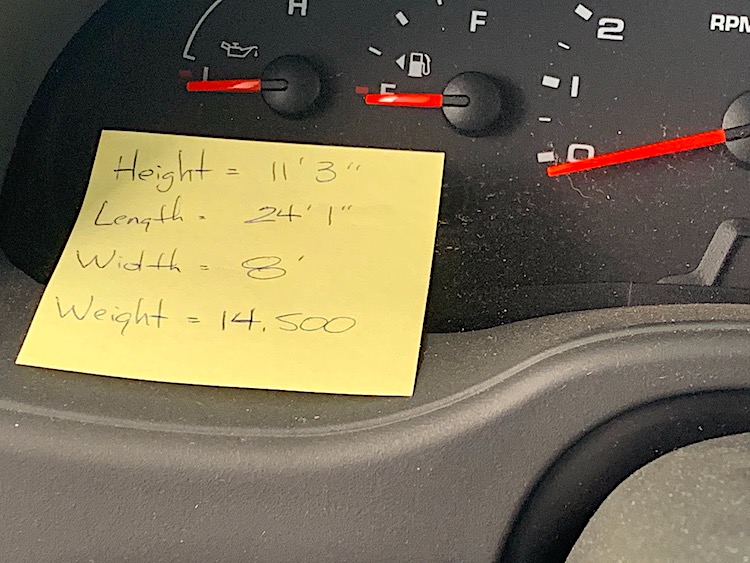 H
F
2
RPM
1
E
0
Height = 11' 3"
Length = 24' 1"
Width = 8'
Weight = 14,500